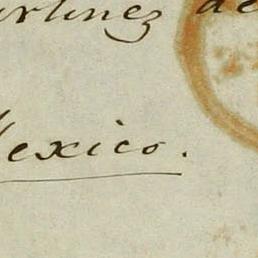 artinez de
Mexico.